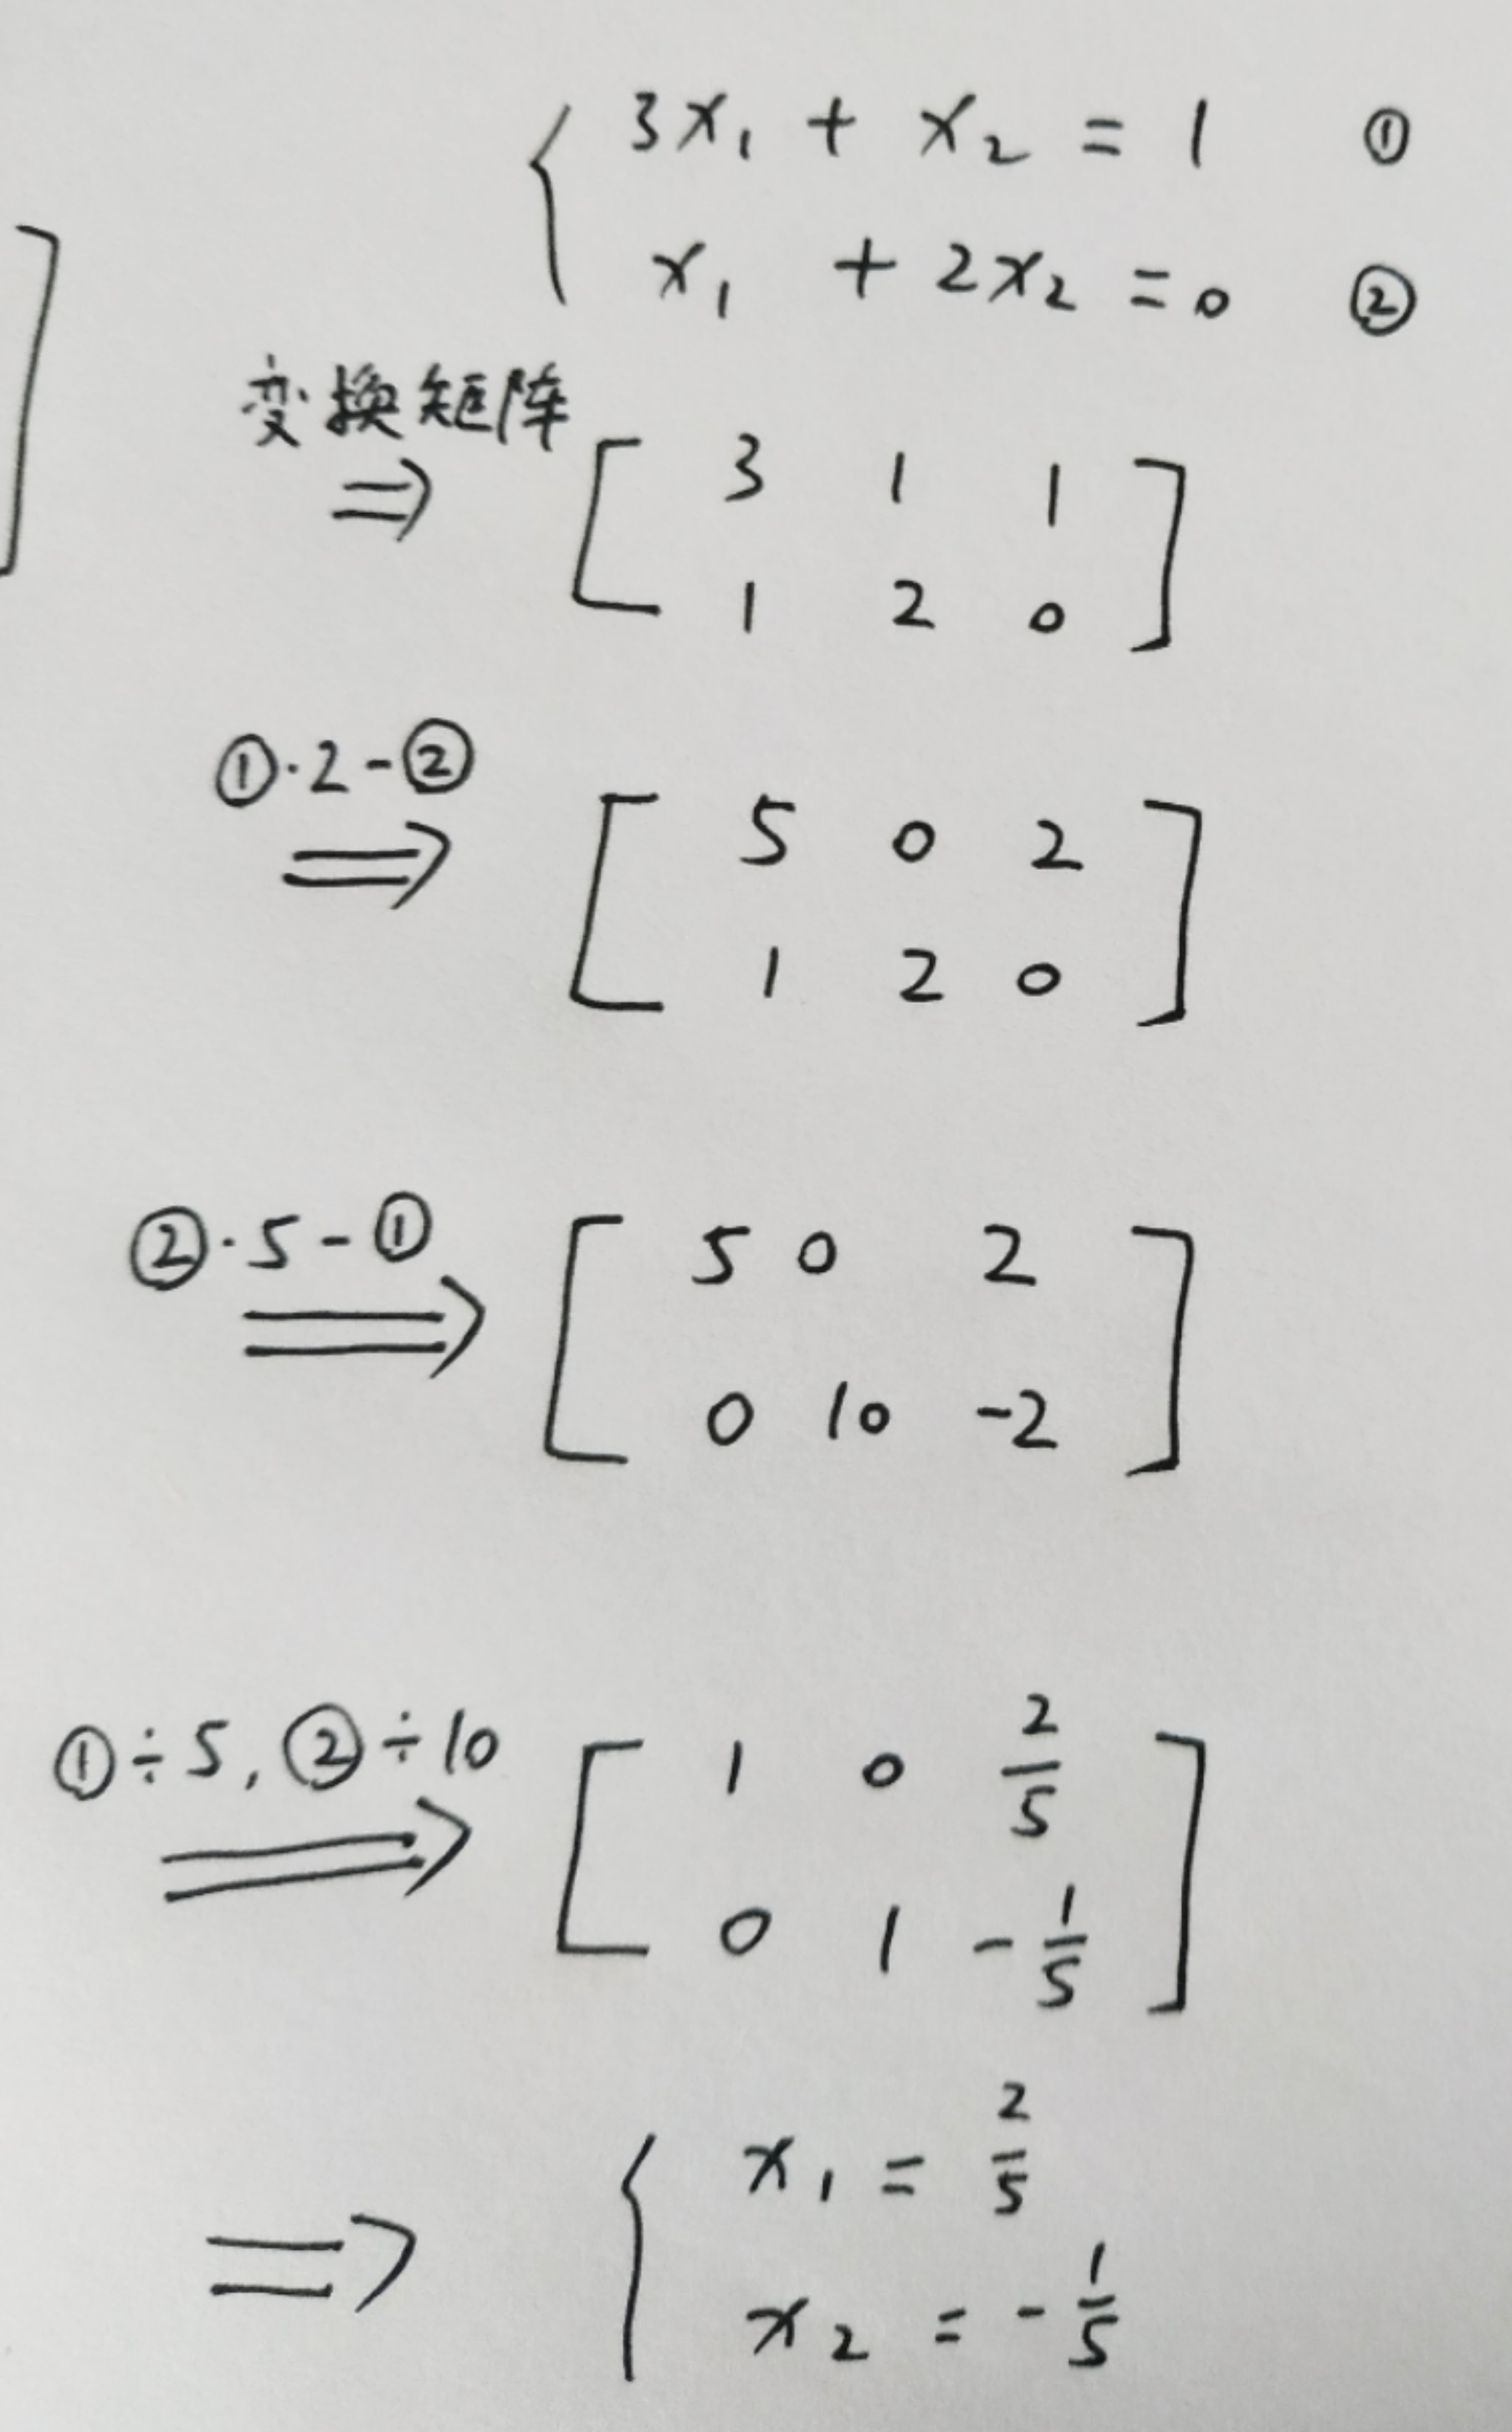 3x₁ + x₂ = 1 ①
x₁ + 2x₂ = 0 ②
变换矩阵
⇒ [ 3 1 1
1 2 0 ]
①·2-②
⇒ [ 5 0 2
1 2 0 ]
②·5-①
⇒ [ 5 0 2
0 10 -2 ]
①÷5, ②÷10
⇒ [ 1 0 2/5
0 1 -1/5 ]
⇒ { x₁ = 2/5
x₂ = -1/5